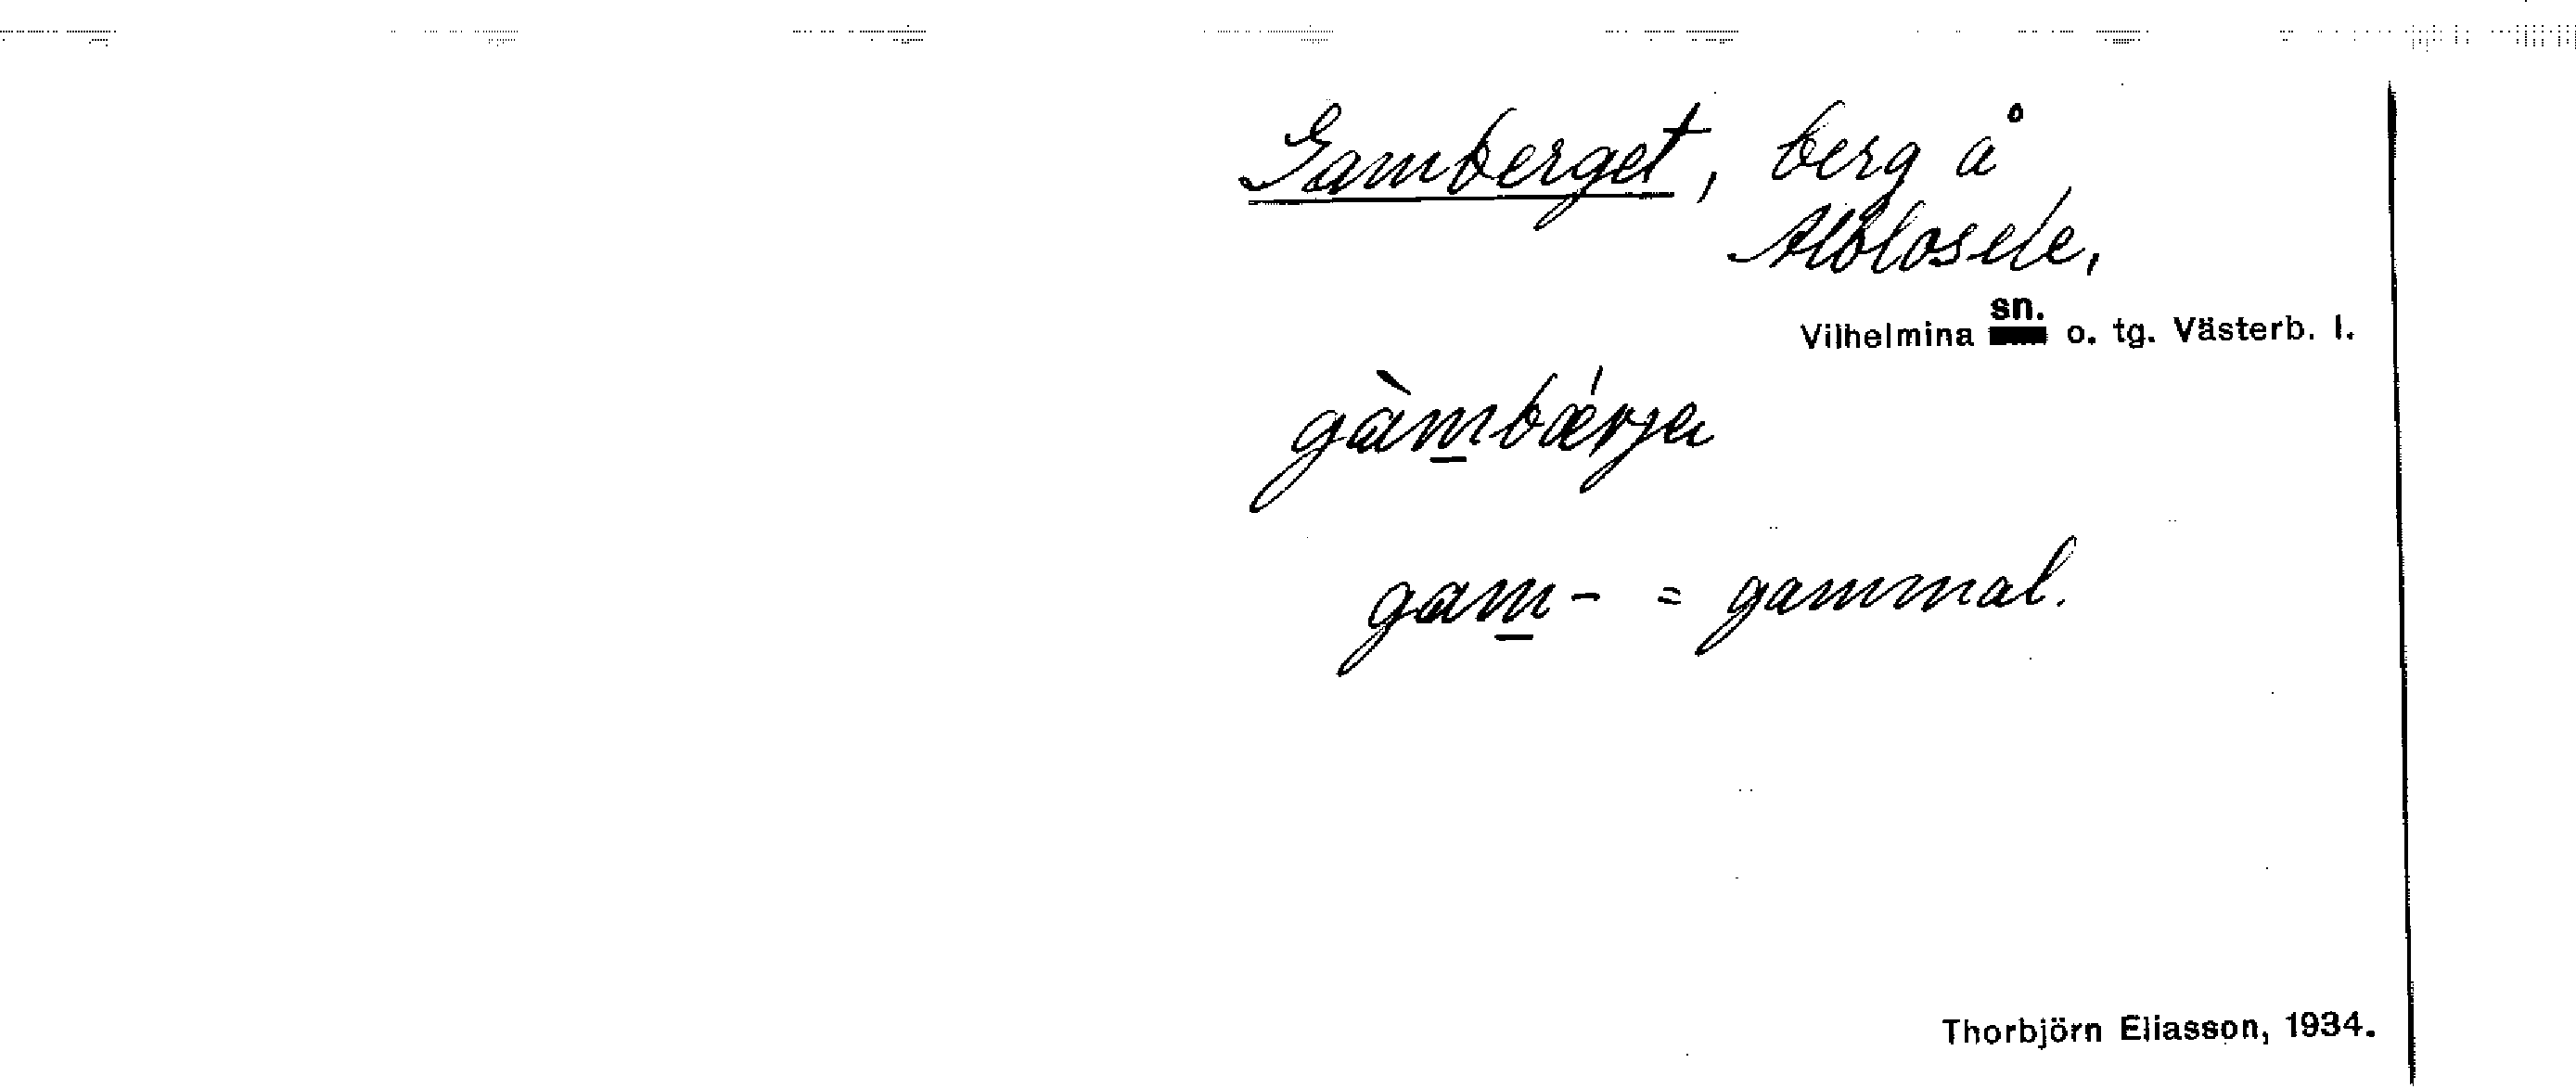 Gamberget, berg å
Alblosele,
sn.
Vilhelmina o. tg. Västerb. l.
gàmbǽrjə
gam- = gammal.
Thorbjörn Eliasson, 1934.